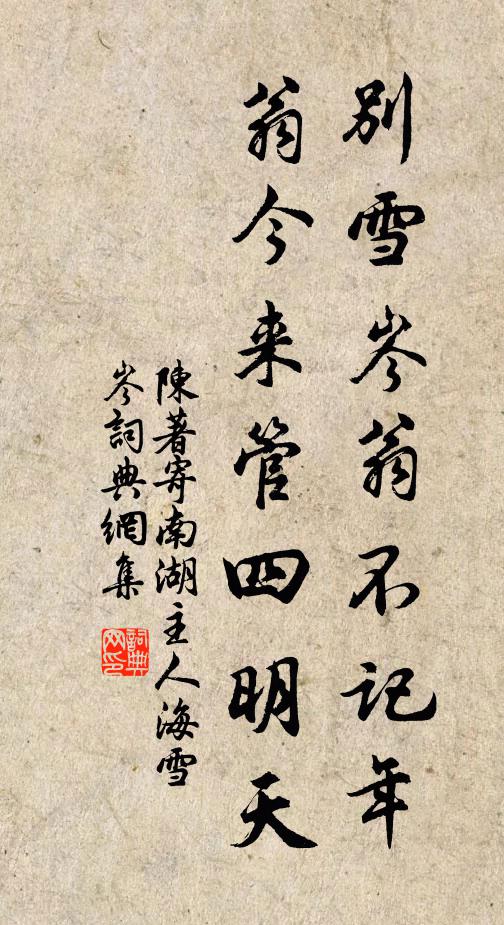 別雪岑翁不记年
翁今来管四明天
陳著寄南湖主人海雪
岑詞典網集
詞典
网印